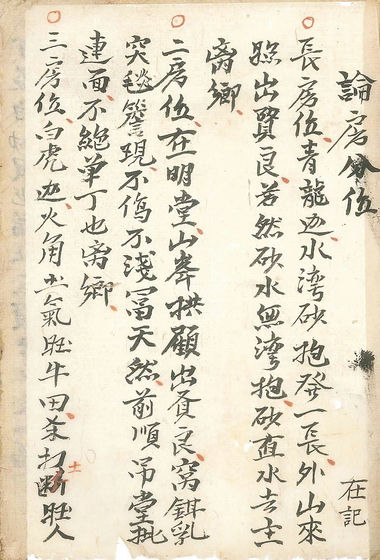 論房分位
在記
長房位青龍边水湾砂抱發一長外山來
照出賢良若然砂水無湾抱砂直水去主
离鄉
二房位在明堂山峯拱顧出賢良窩鉗乳
突毬簷現不傷不淺冨天然前順吊堂
連面不絶单丁也离鄉
三房位白虎边火角 氣旺牛田 打断旺人
土